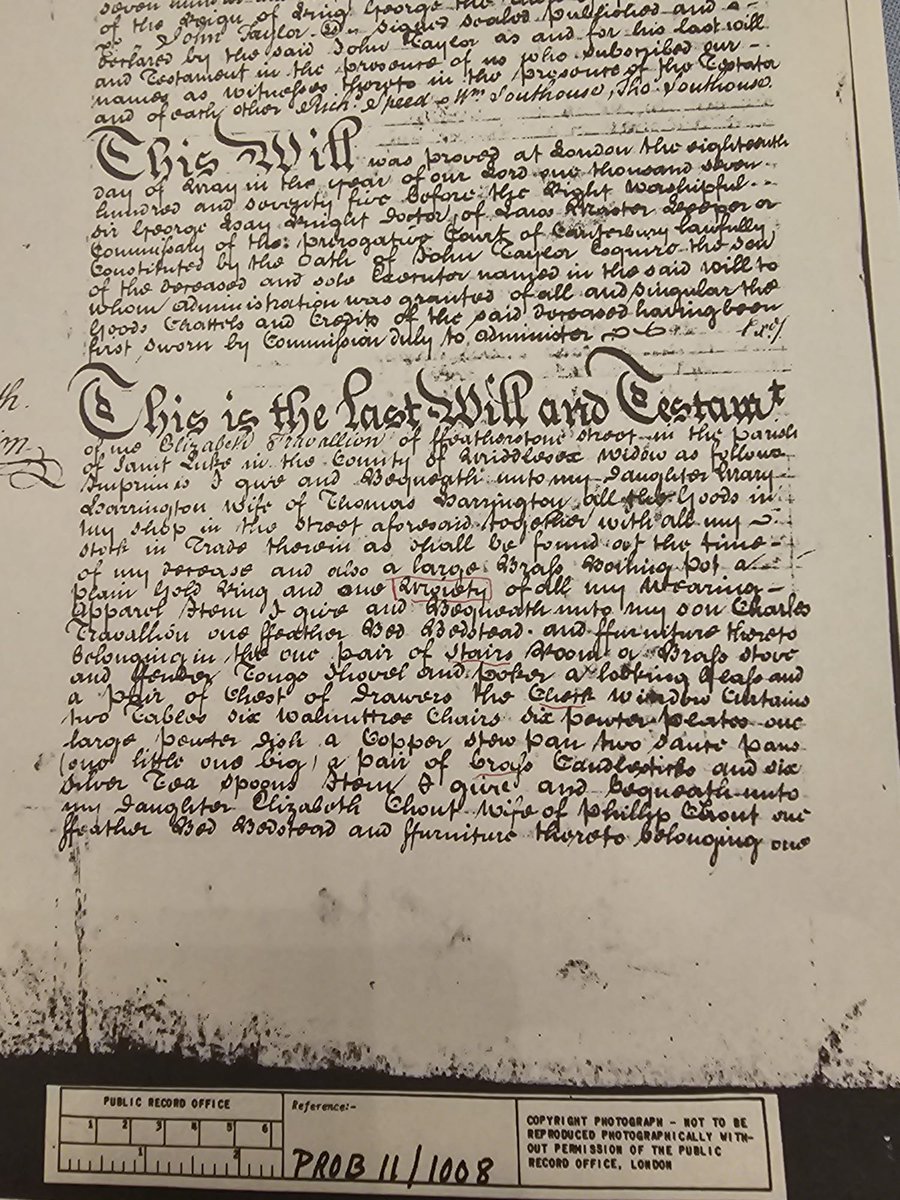 of the Reign of King George the
John Taylor signed sealed published and
declared by the said John Taylor as and for his last will
and Testament in the presence of us who subscribed our
names as witnesses thereto in the presence of the Testator
and of each other Rich.d Speed Wm Southouse, Tho. Southouse.
This Will was proved at London the eighteenth
day of May in the year of our Lord one thousand seven
hundred and seventy five before the Right Worshipful
Sir George Hay Knight Doctor of Laws Master Keeper or
Commissary of the Prerogative Court of Canterbury lawfully
Constituted by the Oath of John Taylor Esquire the son
of the deceased and sole Executor named in the said will to
whom Administration was granted of all and singular the
Goods Chattels and Credits of the said deceased having been
first sworn by Commission duly to Administer
This is the last Will and Testam.t
of me Elizabeth Travallion of ffeatherstone street in the parish
of Saint Luke in the County of Middlesex Widow as follows
Imprimis I give and Bequeath unto my Daughter Mary
Harrington wife of Thomas Harrington all the Goods in
my shop in the street aforesaid together with all my
stock in Trade therein as shall be found at the time
of my decease and also a large Brass Boiling pot a
plain Gold Ring and one Moiety of all my Wearing
Apparel Item I give and Bequeath unto my son Charles
Travallion one ffeather Bed Bedstead and ffurniture thereto
belonging in the one pair of stairs Room a Brass stove
and ffender Tongs shovel and poker a looking Glass and
a pair of Chest of Drawers the Check window Curtains
two Tables six walnuttree Chairs six pewter plates one
large pewter dish a Copper stew pan two sauce pans
(one little one big) a pair of brass Candlesticks and six
silver Tea spoons Item I give and bequeath unto
my Daughter Elizabeth Chout wife of Phillip Chout one
ffeather Bed Bedstead and ffurniture thereto belonging one
PUBLIC RECORD OFFICE
1 2 3 4 5 6
1 2
Reference:-
PROB 11/1008
COPYRIGHT PHOTOGRAPH - NOT TO BE
REPRODUCED PHOTOGRAPHICALLY WITH-
OUT PERMISSION OF THE PUBLIC
RECORD OFFICE, LONDON